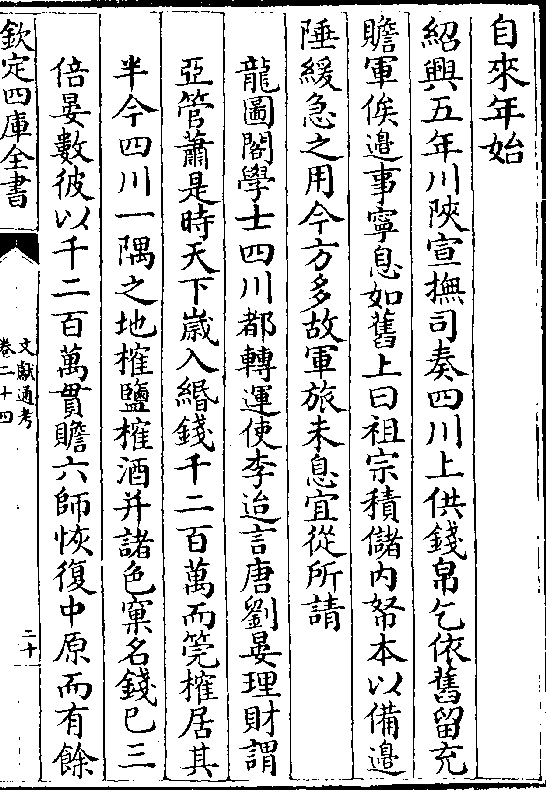 自來年始
紹興五年川陜宣撫司奏四川上供錢帛乞依舊留充
贍軍俟邉事寧息如舊上曰祖宗積儲内帑本以備邉
陲緩急之用今方多故軍旅未息宜從所請
龍圖閣學士四川都轉運使李迨言唐劉晏理財謂
亞管蕭是時天下歳入緡錢千二百萬而筦榷居其
半今四川一隅之地榷鹽榷酒并諸色窠名錢已三
倍晏數彼以千二百萬貫贍六師恢復中原而有餘
欽定四庫全書
文獻通考
卷二十四
二十